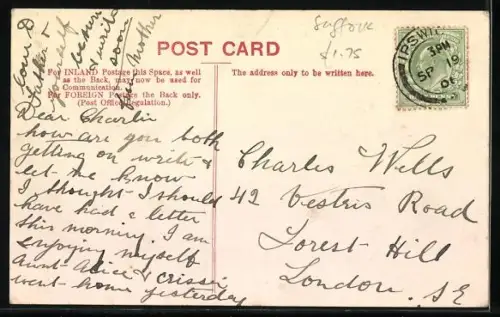 Love D
Father &
yourself
return
& write
soon
from Mother
Suffolk
£1.75
POST CARD
For INLAND Postage this Space, as well
as the Back, may now be used for
Communication.
For FOREIGN Postage the Back only.
(Post Office Regulation.)
The address only to be written here.
IPSWIC
3 PM
SP 19
Dear Charlie
how are you both
getting on write &
let me know
I thought I should
have had a letter
this morning. I am
enjoying myself
Aunt Alice & Crissie
went home yesterday
Charles Wells
42 Vestris Road
Forest Hill
London. SE